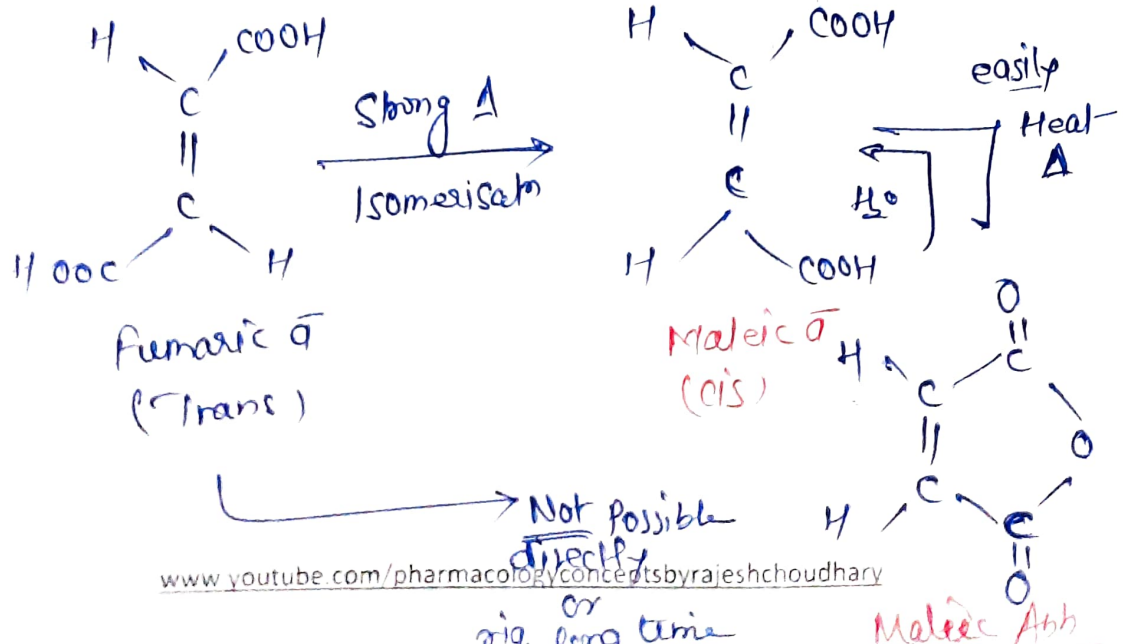 H COOH
C
||
C
HOOC H
Fumaric a̅
(Trans)
Strong Δ
Isomerisatn
H COOH
C
||
C
H COOH
Maleic a̅
(cis)
easily
Heat
Δ
H2O
O
||
H C
C
||
O
C
H C
||
O
Maleic Anh
Not Possible
directly
www.youtube.com/pharmacologyconceptsbyrajeshchoudhary
or
long time